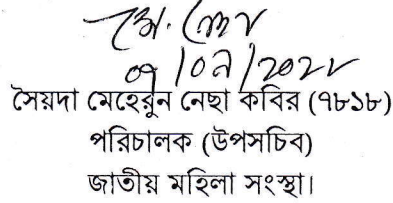 সৈয়দা মেহেরুন নেছা কবির (৭৮১৮)
পরিচালক (উপসচিব)
জাতীয় মহিলা সংস্থা।